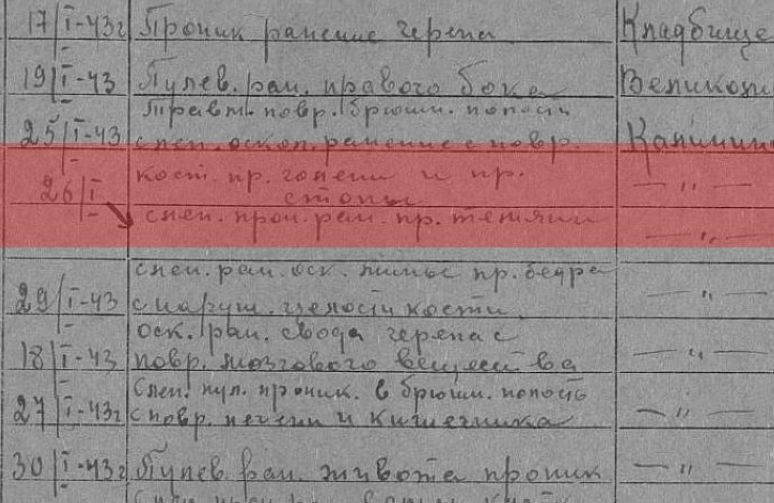 17/I-43г Проник ранение черепа Кладбище
19/I-43 Пулев. ран. правого бока
Травм. повр. брюшн. полости
25/I-43 слеп. оскол. ранение с повр.
кост. пр. голени и пр. — " —
26/I стопы
слеп. прон. ран. пр. — " —
слеп. ран. оск. пр. бедра
29/I-43 с наруш. целости кости. — " —
оск. ран. свода черепа с
18/I-43 повр. мозгового вещества — " —
Слеп. пул. проник. в брюшн. полость
27/I-43г с повр. печени и кишечника — " —
30/I-43г Пулев. ран. живота проник — " —